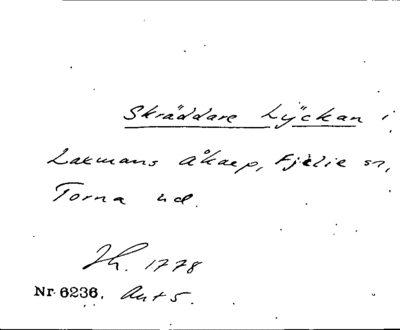 Skräddare Lÿckan i
Lakmans Åkarp, Fjelie sn,
Torna hd.
Jh. 1778
Nr 6236. Akt 5.